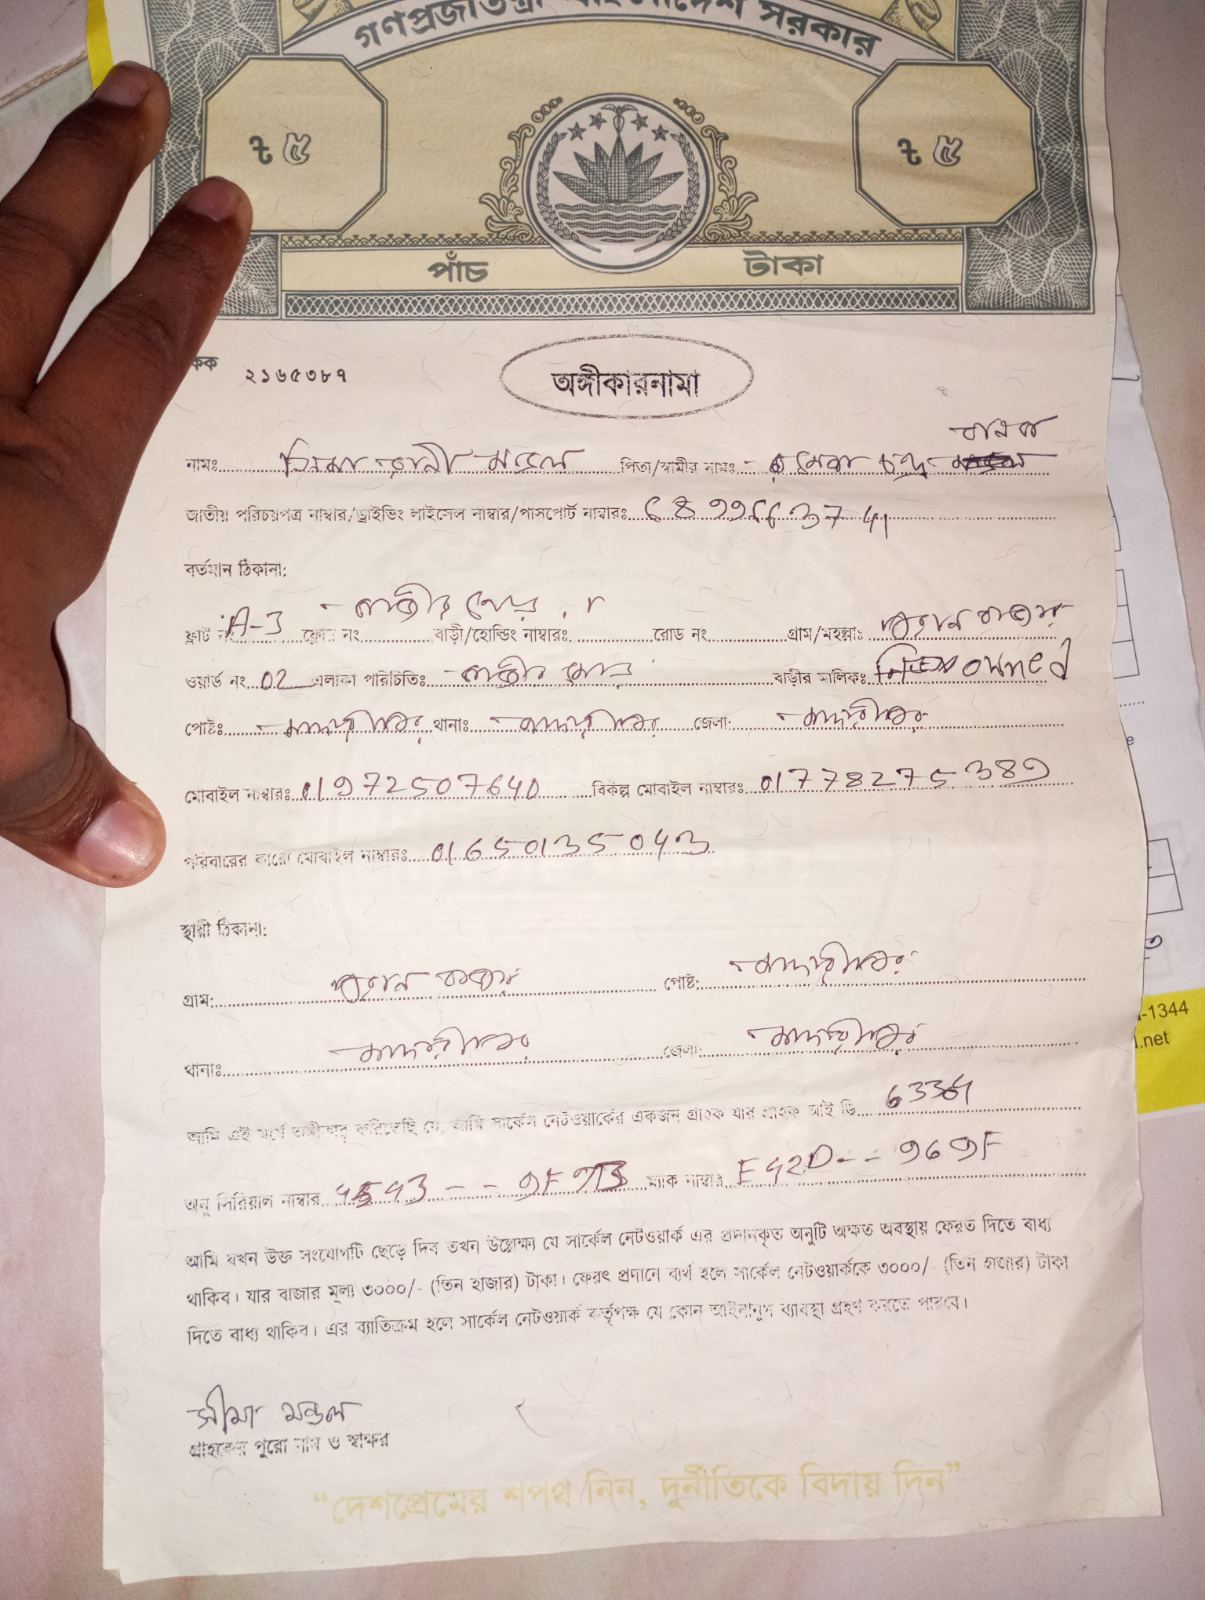 গণপ্রজাতন্ত্রী বাংলাদেশ সরকার
৳ ৫ ৳ ৫
পাঁচ টাকা
কক ২১৬৫৩৮৭
অঙ্গীকারনামা
নামঃ রানী মন্ডল পিতা/স্বামীর নামঃ চন্দ্র
জাতীয় পরিচয়পত্র নাম্বার/ড্রাইভিং লাইসেন্স নাম্বার/পাসপোর্ট নাম্বারঃ
বর্তমান ঠিকানা:
ফ্লাট নং A-3 ফ্লোর নং বাড়ী/হোল্ডিং নাম্বারঃ রোড নং গ্রাম/মহল্লাঃ
ওয়ার্ড নং 02 এলাকা পরিচিতিঃ বাড়ীর মালিকঃ owned
পোষ্টঃ মাদারীপুর থানাঃ মাদারীপুর জেলা: মাদারীপুর
মোবাইল নাম্বারঃ 01972507640 বিকল্প মোবাইল নাম্বারঃ 01778275389
পরিবারের কারো মোবাইল নাম্বারঃ 01650135043
স্থায়ী ঠিকানা:
গ্রাম: পোষ্ট: মাদারীপুর
থানাঃ মাদারীপুর জেলা: মাদারীপুর
আমি এই মর্মে অঙ্গীকার করিতেছি যে, আমি সার্কেল নেটওয়ার্কের একজন গ্রাহক যার গ্রাহক আই ডি
অনু সিরিয়াল নাম্বার ম্যাক নাম্বার E42D-- 969F
আমি যখন উক্ত সংযোগটি ছেড়ে দিব তখন উল্লেক্ষ্য যে সার্কেল নেটওয়ার্ক এর প্রদানকৃত অনুটি অক্ষত অবস্থায় ফেরত দিতে বাধ্য
থাকিব। যার বাজার মূল্য ৩০০০/- (তিন হাজার) টাকা। ফেরৎ প্রদানে ব্যর্থ হলে সার্কেল নেটওয়ার্ককে ৩০০০/- (তিন হাজার) টাকা
দিতে বাধ্য থাকিব। এর ব্যাতিক্রম হলে সার্কেল নেটওয়ার্ক কর্তৃপক্ষ যে কোন আইনানুগ ব্যাবস্থা গ্রহণ করতে পারবে।
সীমা মন্ডল
গ্রাহকের পুরো নাম ও স্বাক্ষর
“দেশপ্রেমের শপথ নিন, দুর্নীতিকে বিদায় দিন”
-1344
.net